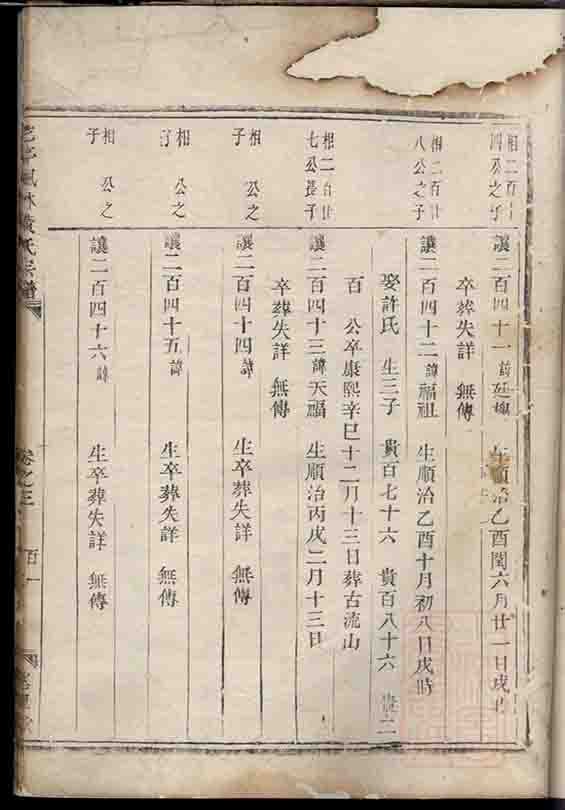 相二百十
四公之子
讓二百四十一諱延 生順治乙酉閏六月廿一日戌時
卒葬失詳 無傳
相二百廿
八公之子
讓二百四十二諱福祖 生順治乙酉十月初八日戌時
娶許氏 生三子 貴百七十六 貴百八十六 貴二
百 公卒康熙辛巳十二月十三日葬古流山
相二百廿
七公長子
讓二百四十三諱天福 生順治丙戌二月十三日
卒葬失詳 無傳
相 公之
子
讓二百四十四諱 生卒葬失詳 無傳
相 公之
子
讓二百四十五諱 生卒葬失詳 無傳
相 公之
子
讓二百四十六諱 生卒葬失詳 無傳
黃氏宗譜 卷之三 百一